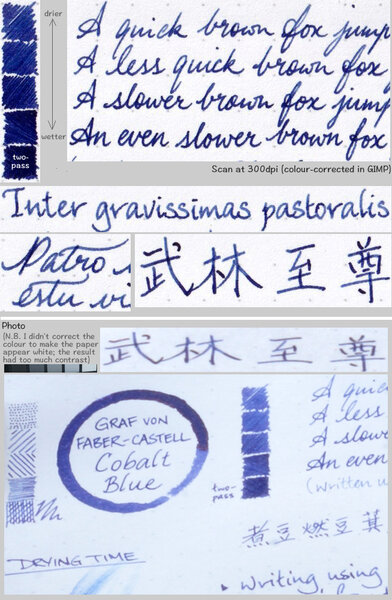 drier
A quick brown fox jump
A less quick brown fox
A slower brown fox jum
An even slower brown fox
wetter
two-pass
Scan at 300dpi (colour-corrected in GIMP)
Inter gravissimas pastoralis
Patro
estu vi
武林至尊
Photo
(N.B. I didn't correct the
colour to make the paper
appear white; the result
had too much contrast)
武林至尊
GRAF VON
FABER-CASTELL
Cobalt
Blue
A quic
A less
A slowe
An even
two-pass
(written u
煮豆燃豆萁
DRYING TIME
writing using